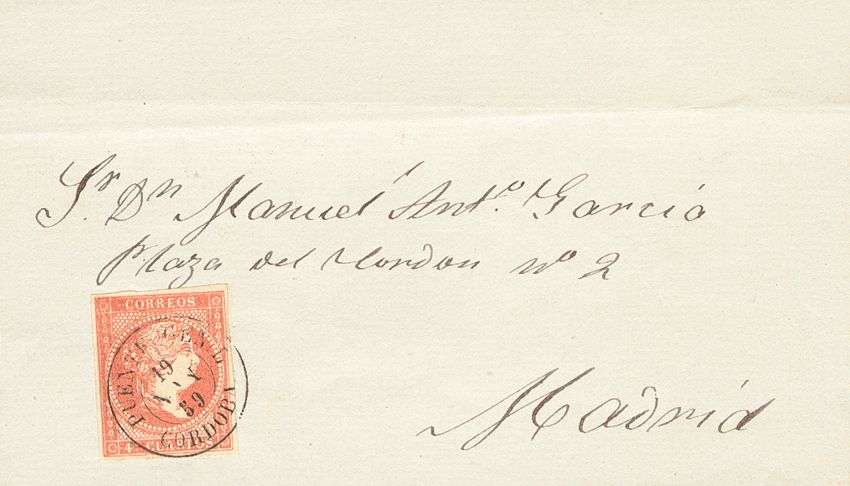 Sr. Dn Manuel Anto. García
Plaza del Cordon no 2
CORREOS
PUENTE GENIL
19
59
CORDOBA
4 CUARTOS
Madrid